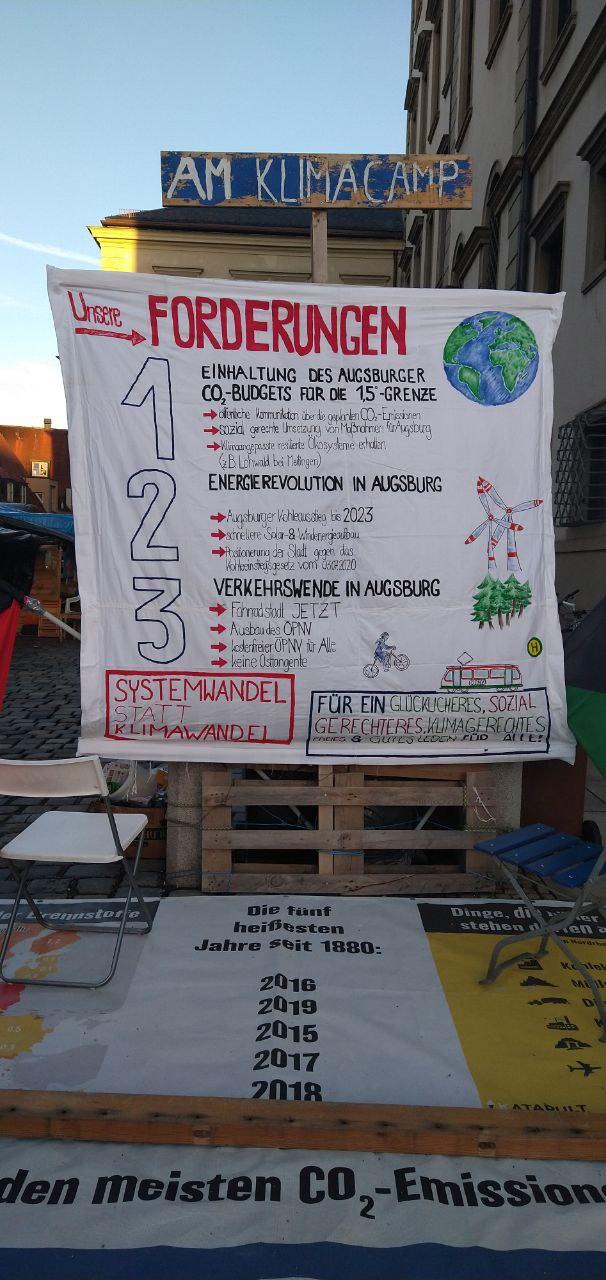 AM KLIMACAMP
Unsere
FORDERUNGEN
1
EINHALTUNG DES AUGSBURGER
CO₂-BUDGETS FÜR DIE 1,5°-GRENZE
öffentliche Kommunikation über die geplanten CO₂-Emissionen
sozial gerechte Umsetzung von Maßnahmen für Augsburg
Klimaangepasste resiliente Ökosysteme erhalten
(z.B. Lohwald bei Meitingen)
2
ENERGIEREVOLUTION IN AUGSBURG
Augsburger Kohleausstieg bis 2023
schnellere Solar- & Windenergieausbau
Positionierung der Stadt gegen das
Kohleeinstiegsgesetz vom 03.07.2020
3
VERKEHRSWENDE IN AUGSBURG
Fahrradstadt JETZT
Ausbau des ÖPNV
kostenfreier ÖPNV für Alle
keine Osttangente
H
SYSTEMWANDEL
STATT
KLIMAWANDEL
FÜR EIN GLÜCKLICHERES, SOZIAL
GERECHTERES, KLIMAGERECHTES
FREIES & GUTES LEBEN FÜR ALLE!
der Brennstoffe
1,2
0,5
0,3
Die fünf
heißesten
Jahre seit 1880:
2016
2019
2015
2017
2018
Dinge, di
stehen
KATAPULT
den meisten CO₂-Emissions